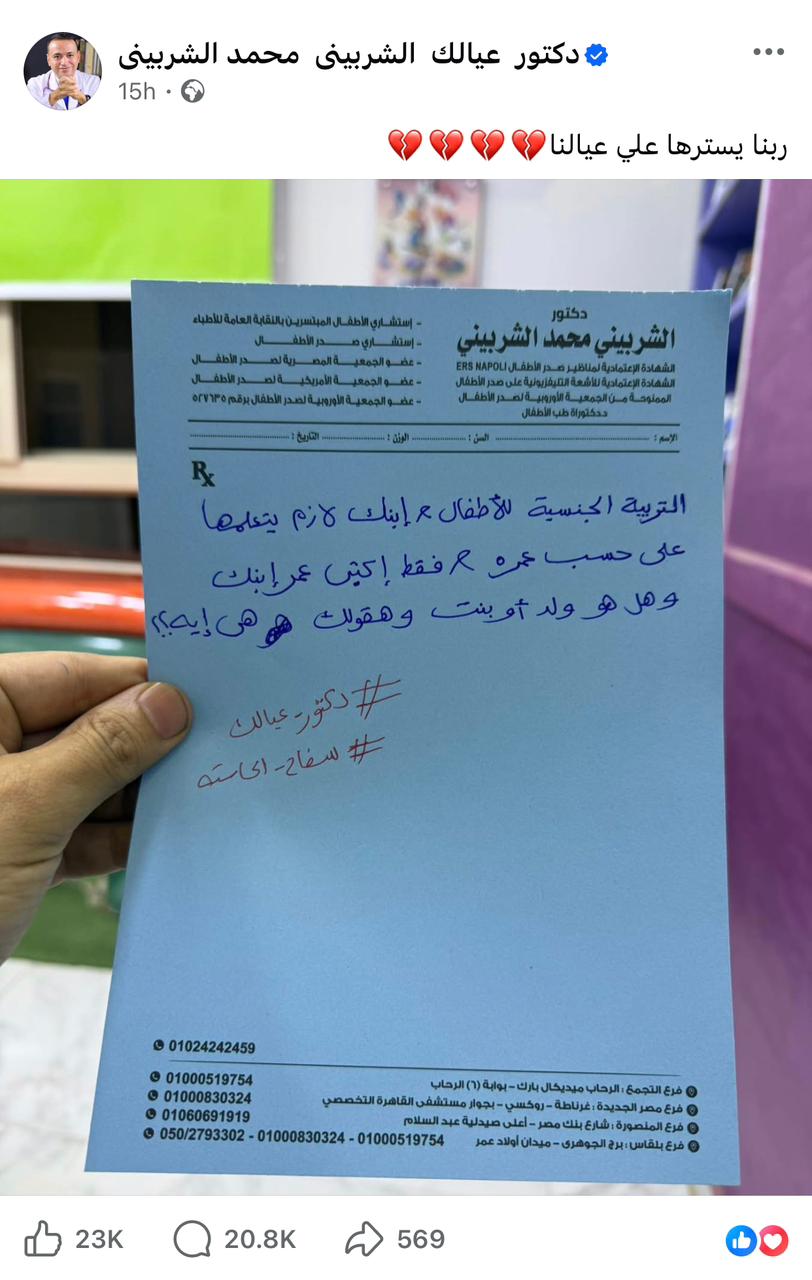 دكتور عيالك الشربينى محمد الشربينى
15h
ربنا يسترها علي عيالنا💔💔💔💔
دكتور
الشربيني محمد الشربيني
الشهادة الإعتمادية لمناظير صدر الأطفال ERS NAPOLI
الشهادة الإعتمادية للأشعة التليفزيونية على صدر الأطفال
الممنوحة من الجمعية الأوروبية لصدر الأطفال
دكتوراة طب الأطفال
- إستشاري الأطفال المبتسرين بالنقابة العامة للأطباء
- إستشاري صدر الأطفال
- عضو الجمعية المصرية لصدر الأطفال
- عضو الجمعية الأمريكية لصدر الأطفال
- عضو الجمعية الأوروبية لصدر الأطفال برقم ٥٢٧٦٣٥
الإسم : السن : الوزن : التاريخ :
Rx
التربية الجنسية للأطفال إبنك لازم يتعلمها
على حسب عمره فقط إكتبي عمر إبنك
وهل هو ولد أو بنت وهقولك هى إيه؟؟
#دكتور_عيالك
01024242459
فرع التجمع : الرحاب ميديكال بارك - بوابة (٦) الرحاب 01000519754
فرع مصر الجديدة : غرناطة - روكسي - بجوار مستشفى القاهرة التخصصي 01000830324
فرع المنصورة : شارع بنك مصر - أعلى صيدلية عبد السلام 01060691919
فرع بلقاس : برج الجوهرى - ميدان أولاد عمر 050/2793302 - 01000830324 - 01000519754
23K 20.8K 569